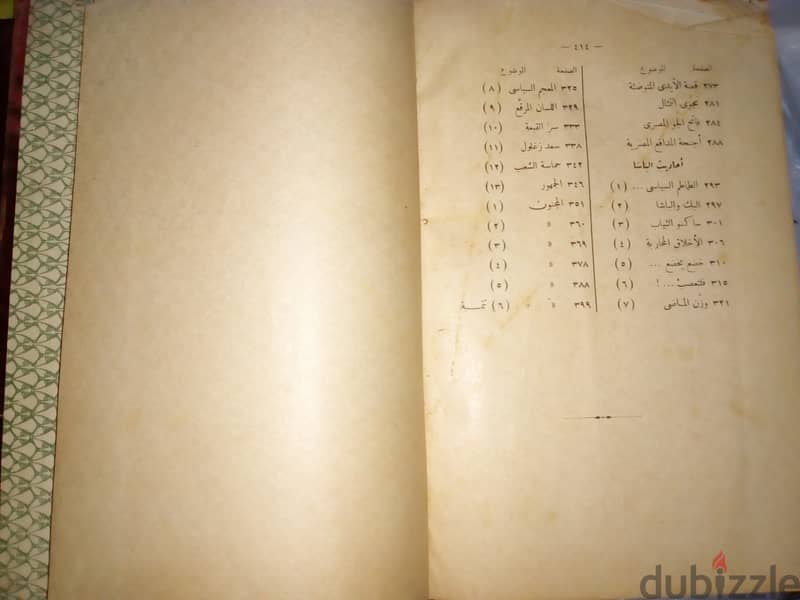 — ٤١٤ —
الصفحة الموضوع
٢٧٣ قصة الأيدى المتوضئة
٢٨١ نجوى التمثال
٢٨٤ فاتح الجو المصرى
٢٨٨ أجنحة المدافع المصرية
أحاديث الباشا
٢٩٣ الطماطم السياسى ... (١)
٢٩٧ البك والباشا (٢)
٣٠١ ساكنو الثياب (٣)
٣٠٦ الأخلاق المحاربة (٤)
٣١٠ خضع يخضع ... (٥)
٣١٥ فلنتعصب ... ! (٦)
٣٢١ وزن الماضى (٧)
الصفحة الموضوع
٣٢٥ المعجم السياسى (٨)
٣٢٩ اللسان المرقع (٩)
٣٣٣ سر القبعة (١٠)
٣٣٨ سعد زغلول (١١)
٣٤٢ حماسة الشعب (١٢)
٣٤٦ الجمهور (١٣)
٣٥١ المجنون (١)
٣٦٠ » (٢)
٣٦٩ » (٣)
٣٧٨ » (٤)
٣٨٨ » (٥)
٣٩٩ » (٦) تتمة
dubizzle